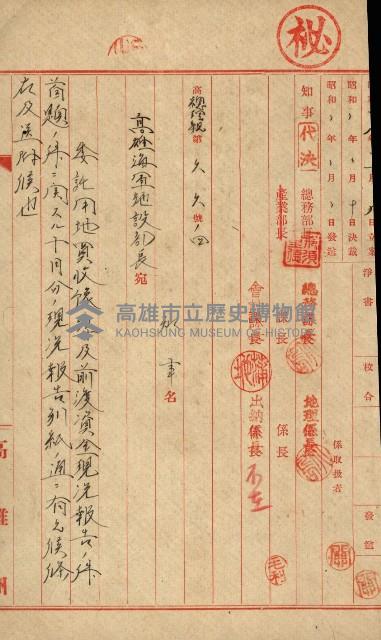 秘
昭和 年 月 日立案
昭和 年 月 日決裁
昭和 年 月 日發送
淨書 校合 發送
知事 代決 總務部長
產業部長
總務課長 地理係長 係取扱者
課長 係長
會計課長 出納係長 不在
毛利
高 第久久號ノ四
高雄海軍施設部長宛
知事名
委託用地買收 及前渡資金現況報告ノ件
首題ノ件ニ關スル十月分ノ現況報告別紙ノ通ニ有之候條
右及 候也
高雄州
高雄市立歷史博物館
KAOHSIUNG MUSEUM OF HISTORY